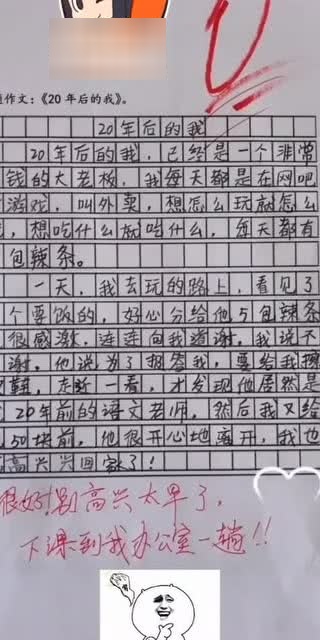 作文：《20年后的我》。
20年后的我
20年后的我，已经是一个非常
钱的大老板，我每天都是在网吧
游戏，叫外卖，想怎么玩就怎么
，想吃什么就吃什么，每天都有
包辣条。
一天，我去玩的路上，看见了
个要饭的，好心分给他5包辣条
很感激，连连向我道谢。我说不
谢。他说为了报答我，要给我擦
鞋，走近一看，才发现他居然是
20年前的语文老师，然后我又给
50块前，他很开心地离开，我也
高兴兴回家了！
很好，别高兴太早了，
下课到我办公室一趟！！